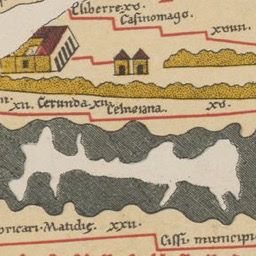 Eliberre.xv.
Casinomago.
xviiii.
xii. Cerunda.xii.
Celneiana.
xv.
Matidię. xxii.
Cissi municipi